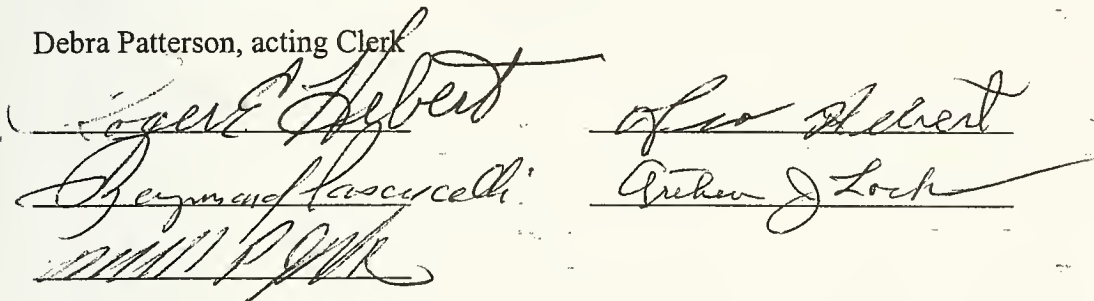 Debra Patterson, acting Clerk
Roger E Hebert
Leo Hebert
Raymond Pascucelli
Arthur J Lock